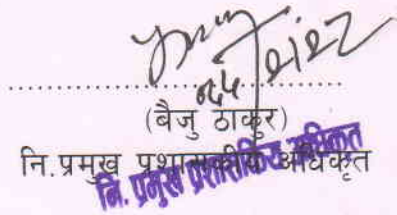 (बैजु ठाकुर)
नि.प्रमुख प्रशासकीय अधिकृत
नि. प्रमुख प्रशासकिय अधिकृत